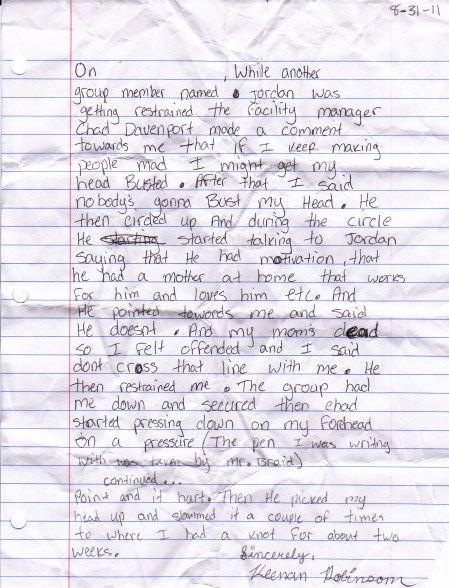 8-31-11
On , While another
group member named Jordan was
getting restrained the facility manager
Chad Davenport made a comment
towards me that if I keep making
people mad I might get my
head Busted. After that I said
nobody's gonna Bust my Head. He
then circled up And during the circle
He started talking to Jordan
saying that He had motivation, that
he had a mother at home that works
For him and loves him etc. And
He pointed towards me and said
He doesnt. And my mom's dead
so I felt offended and I said
dont cross that line with me. He
then restrained me. The group had
me down and secured then chad
started pressing down on my forhead
on a pressure (The pen I was writng
with was taken by mr. Braid)
continued...
Point and it hurt. Then He picked my
head up and slammed it a couple of times
to where I had a knot For about two
weeks. Sincerely,
Keenan Robinson